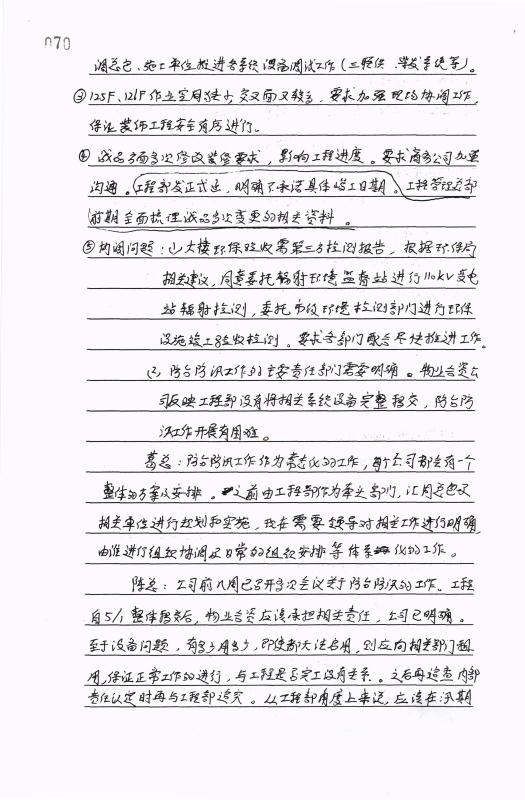 070
调总包、施工单位推进各系统设备调试工作(三联供、柴发系统等)。
③125F、126F作业空间狭小,交叉面又较多,要求加强现场协调工作,
保证装饰工程安全有序进行。
④诚品方面多次修改装修要求,影响工程进度。要求商务公司加强
沟通。工程部发正式函,明确不承诺具体竣工日期。工程管理总部
前期全面梳理诚品多次变更的相关资料。
⑤协调问题:(1)大楼环保验收需第三方检测报告,根据环保局
相关建议,同意委托辐射环境监督站进行110kV变电
站辐射检测,委托市级环境检测部门进行环保
设施竣工验收检测。要求各部门配合尽快推进工作。
(2)防台防汛工作的主要责任部门需要明确。物业合资公
司反映工程部没有将相关系统设备完整移交,防台防
汛工作开展有困难。
葛总:防台防汛工作作为常态化的工作,每个公司都会有一个
整体的方案及安排。之前由工程部作为牵头部门,汇同总包及
相关单位进行规划和实施,现在需要领导对相关工作进行明确,
由谁进行组织协调及日常的组织安排等体系化的工作。
陈总:公司前几周已召开多次会议关于防台防汛的工作。工程
自5/1整体移交后,物业合资应该承担相关责任,公司已明确。
至于设备问题,有多少用多少,即使都无法启用,则应向相关部门租
用,保证正常工作的进行,与工程是否完工没有关系。之后再追查内部
责任认定时再与工程部追究。从工程部角度上来说,应该在汛期